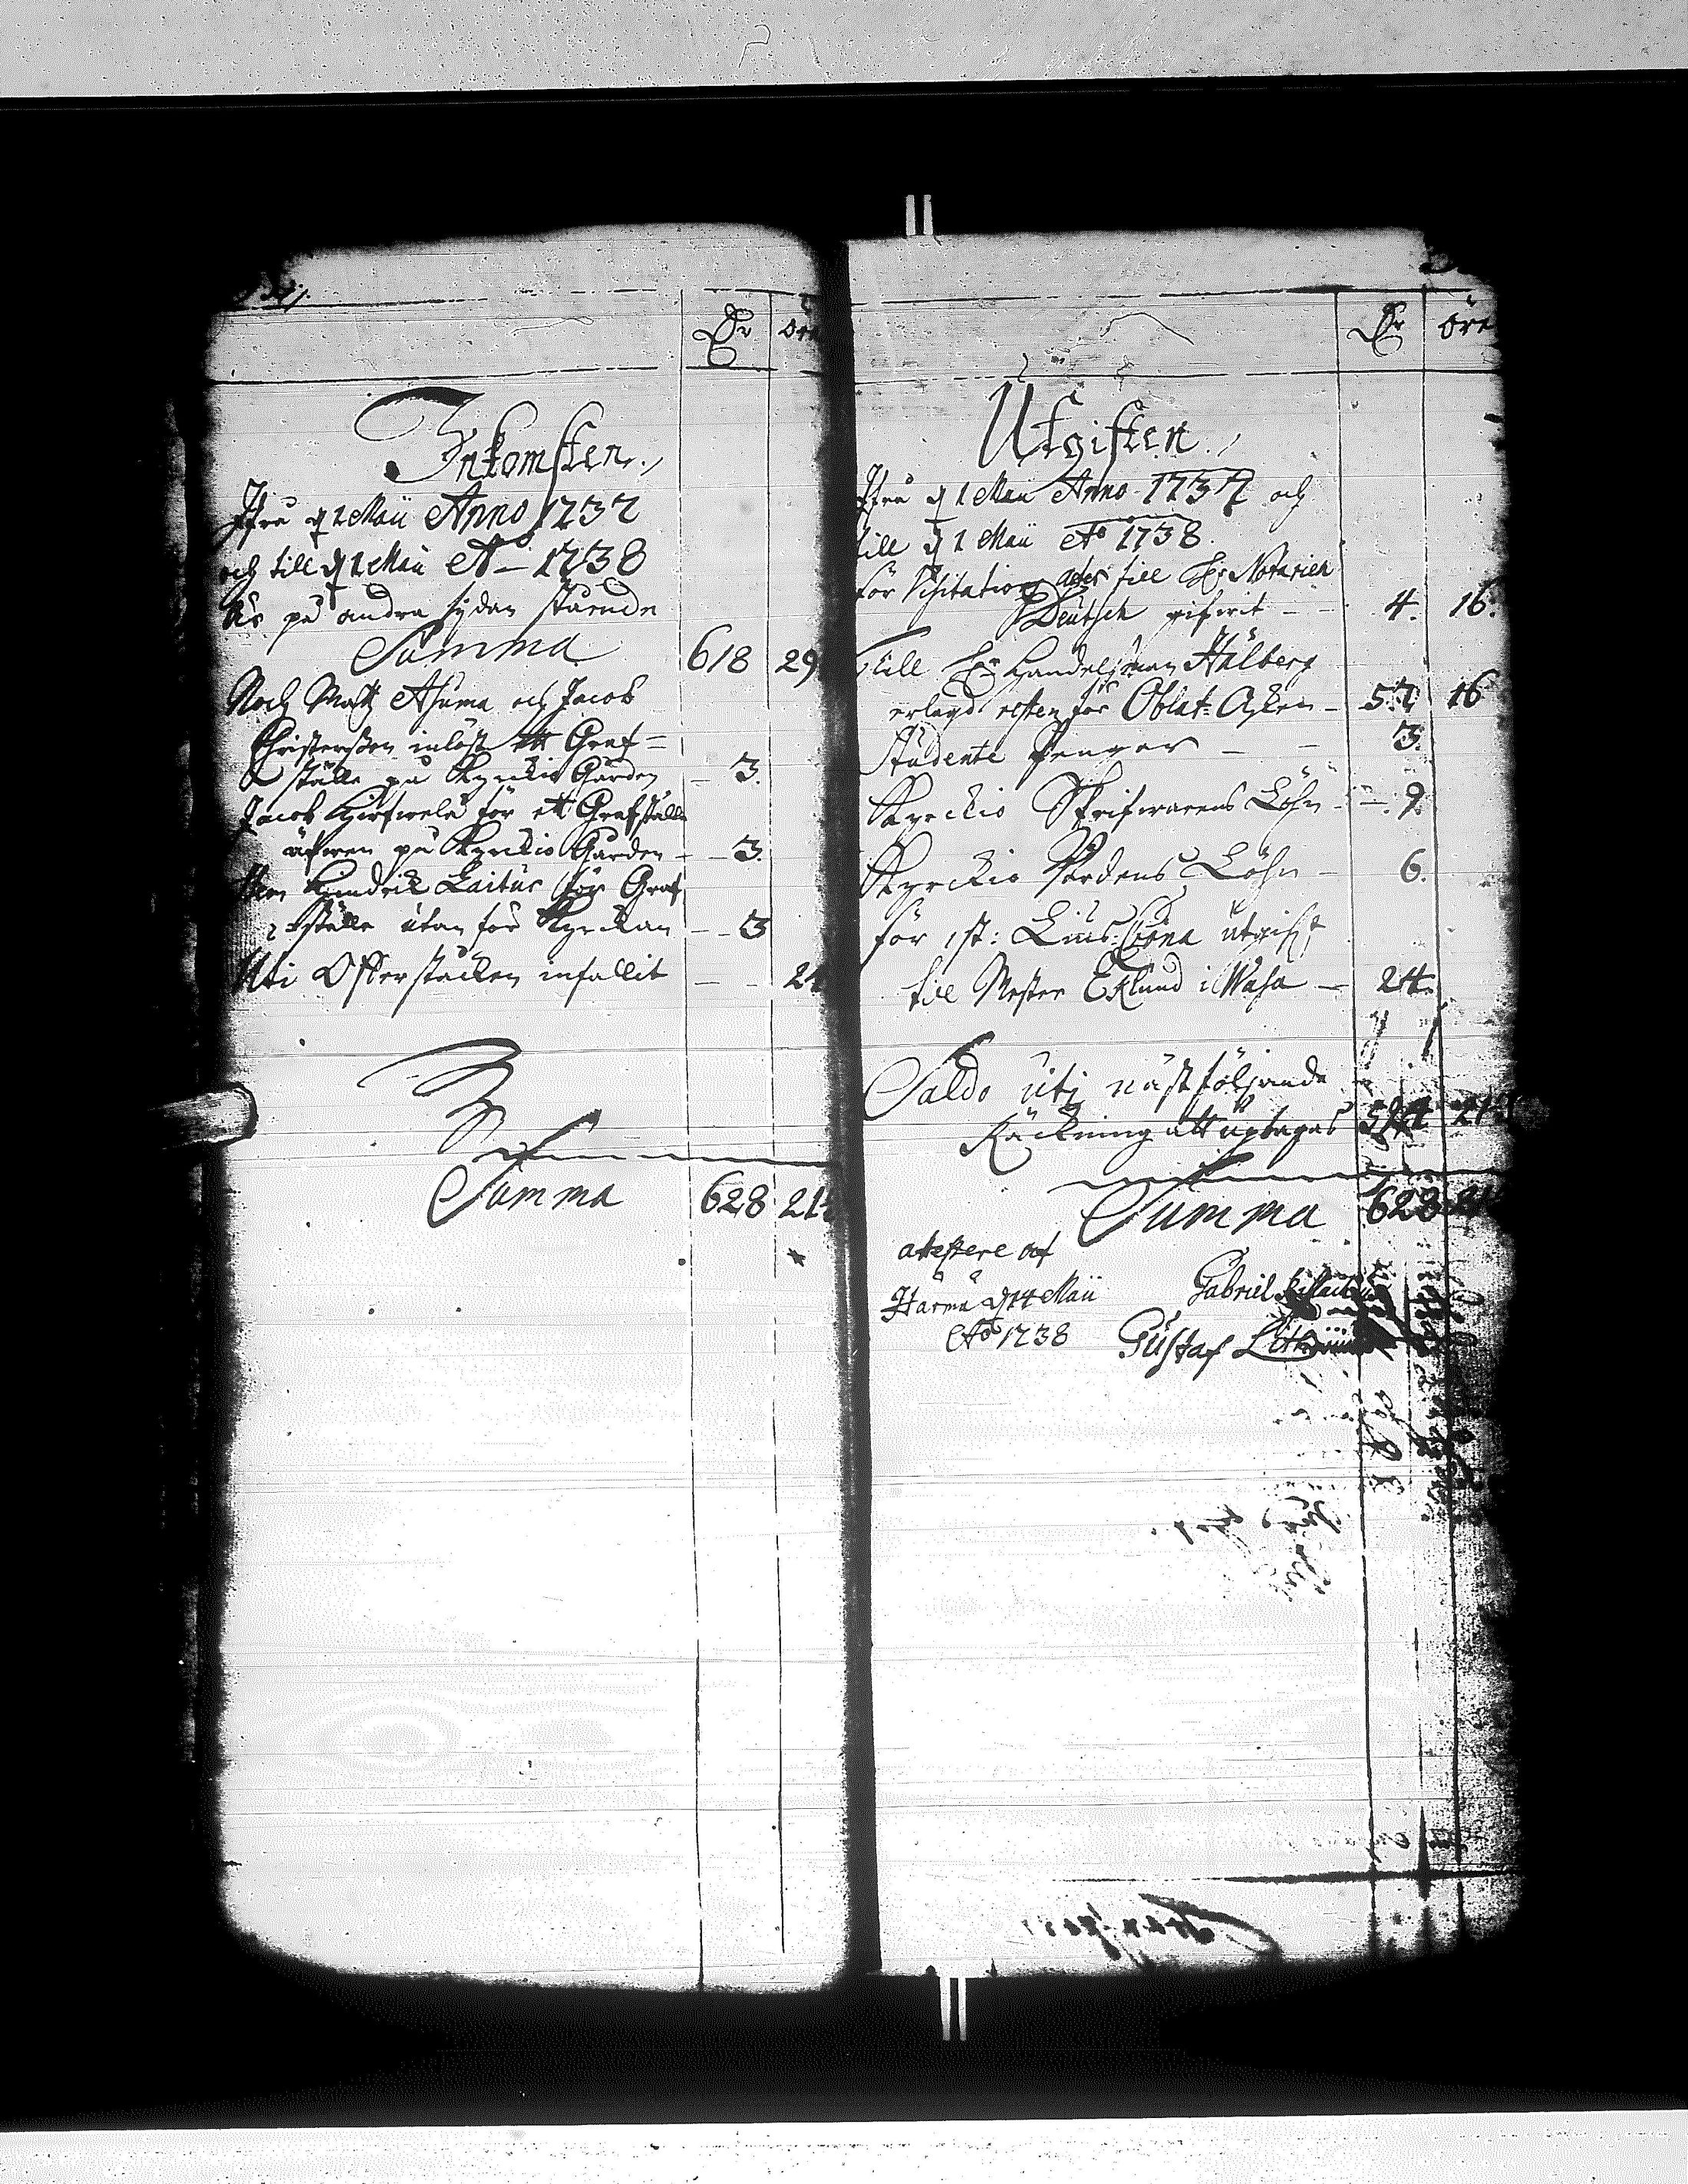 Dr öre
Inkomsten
Ifrå d 1 Maii Anno 1737
och till d 1 Maii Ao 1738
är på andra sydan stående
Summa 618 29
Noch Matz Ahuma och Jacob
Christersson inlöst ett Graf=
ställe på Kyrckio Gården — 3.
Jacob för ett Grafställe
äfwen på Kyrckio Gården — 3.
Hindrich Laitus för Graf
ställe utan för Kyrckan — 3
Uti Offerstacken infallit — 24
Summa 628 21
Dr öre
Utgiften
Ifrå d 1 Maii Anno 1737 och
till d 1 Maii Ao 1738.
för Visitation till Hr Notarien
Deutsch gifwit — 4. 16.
Till Hr Handelsman Hålberg
erlagd resten för Oblat= Asken — 57 16
Studente Pengar — 3.
Kyrckio Skrifwarens Löhn — 9.
Kyrckio Wärdens Löhn — 6.
för 1 st: Lius= Crona utgifft
till Mester Eklund i Wasa — 24.
Saldo uti nästföljande
Räckning att uptagas 524 21
Summa 628 21
attestere af
Härmä d 14 Maii
Ao 1738
Gabriel
Gustaf